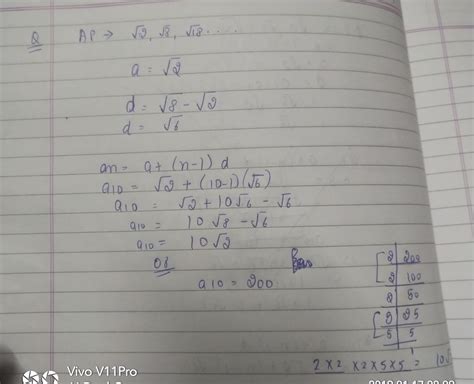 Q AP → √2, √8, √18 ....
a = √2
d = √8 - √2
d = √6
an = a + (n-1) d
a10 = √2 + (10-1)(√6)
a10 = √2 + 10√6 - √6
a10 = 10√8 - √6
a10 = 10√2
OR
a10 = 200
2 200
2 100
2 50
5 25
5 5
1
2 x 2 x 2 x 5 x 5 =
Vivo V11Pro